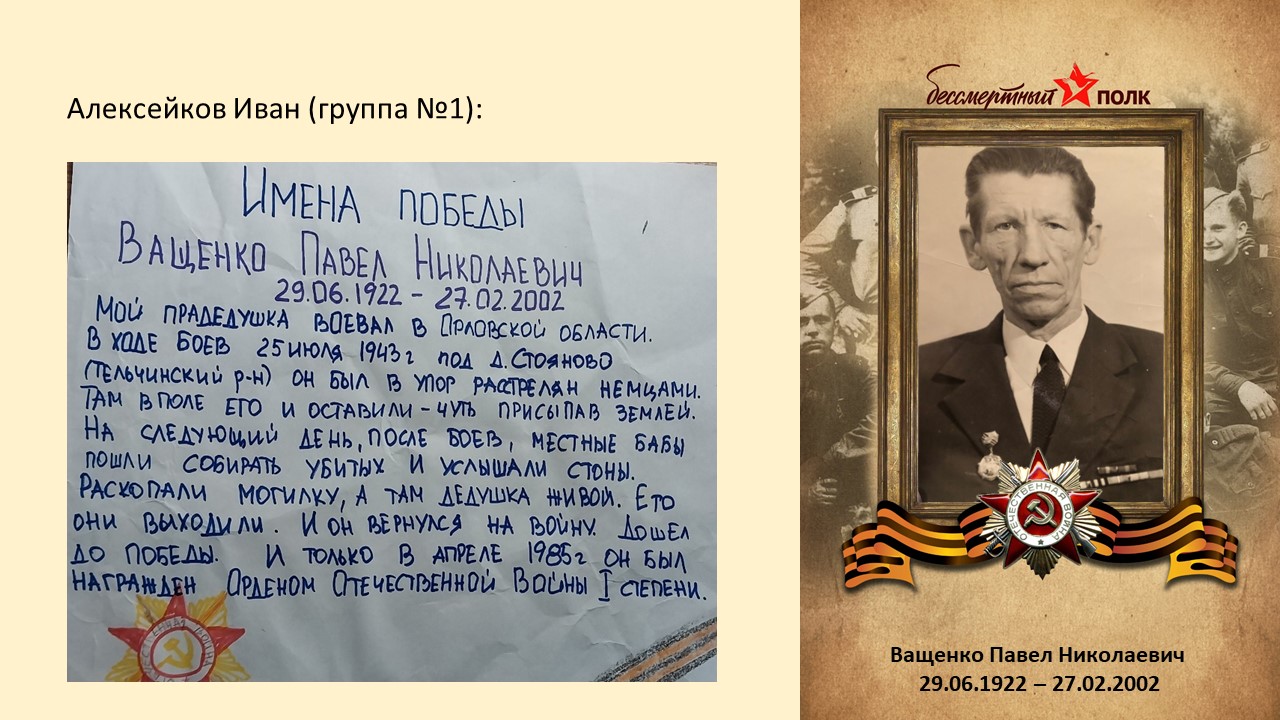 Алексейков Иван (группа №1):
Имена победы
Ващенко Павел Николаевич
29.06.1922 - 27.02.2002
Мой прадедушка воевал в Орловской области.
В ходе боев 25 июля 1943г под д. Стояново
(Тельчинский р-н) он был в упор расстрелян немцами.
Там в поле его и оставили - чуть присыпав землей.
На следующий день, после боев, местные бабы
пошли собирать убитых и услышали стоны.
Раскопали могилку, а там дедушка живой. Его
они выходили. И он вернулся на войну. Дошел
до победы. И только в апреле 1985г он был
награжден Орденом Отечественной Войны I степени.
бессмертный полк
ОТЕЧЕСТВЕННАЯ ВОЙНА
Ващенко Павел Николаевич
29.06.1922 – 27.02.2002